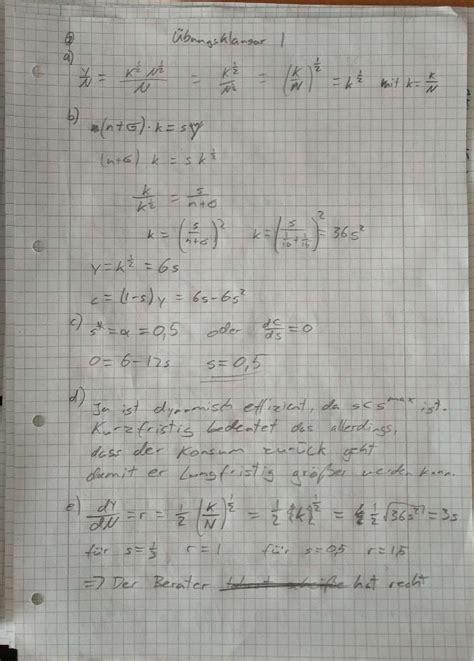 Übungsklausur 1
a)
Y/N = K^½ N^½ / N = K^½ / N^½ = (K/N)^½ = k^½ mit k = K/N
b) (n+σ)·k = sy
(n+σ) k = s k^½
k / k^½ = s / (n+σ)
k = (s / (n+σ))² k = (s / (1/10 + 1/15))² = 36s²
y = k^½ = 6s
c = (1-s) y = 6s - 6s²
c) s* = α = 0,5 oder dc/ds = 0
0 = 6 - 12s s = 0,5
d) Ja ist dynamisch effizient, da s < s^max ist.
Kurzfristig bedeutet das allerdings,
dass der Konsum zurück geht
damit er Langfristig größer werden kann.
e) dY/dN = r = ½ (K/N)^½ = ½ {k}^½ = ½ √36s² = 3s
für s = ⅓ r = 1 für s = 0,5 r = 1,5
=> Der Berater hat recht